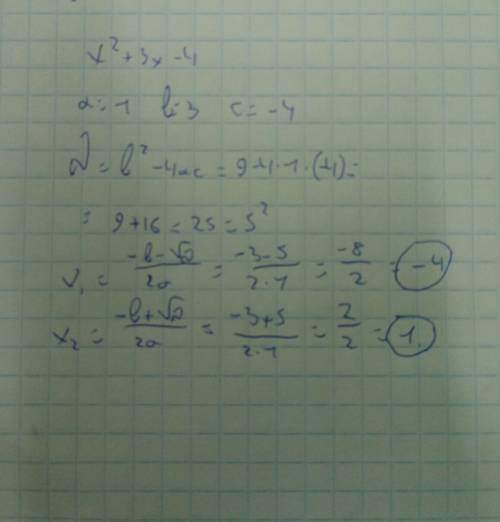 x² + 3x - 4
a = 1 b = 3 c = -4
D = b² - 4ac = 9 - 4·1·(-4) =
= 9 + 16 = 25 = 5²
x₁ = (-b - √D)/2a = (-3 - 5)/(2·1) = -8/2 = -4
x₂ = (-b + √D)/2a = (-3 + 5)/(2·1) = 2/2 = 1.